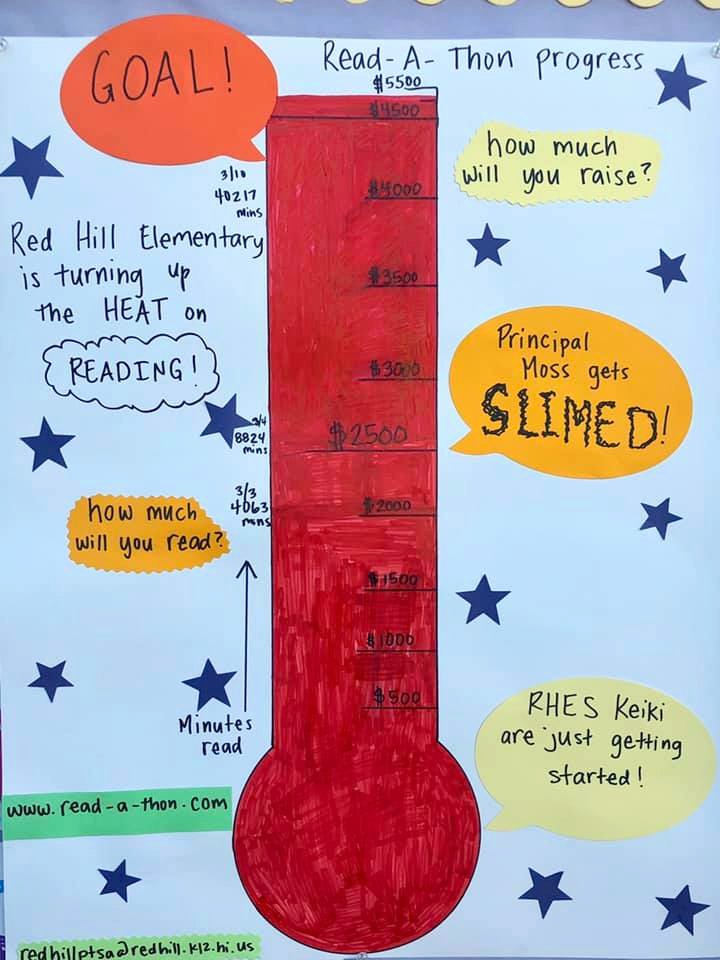 Read-A-Thon progress
GOAL!
$5500
$4500
how much
will you raise?
3/10
40217
mins
$4000
Red Hill Elementary
is turning up
the HEAT on
READING!
$3500
Principal
Moss gets
SLIMED!
$3000
3/4
8824
mins
$2500
3/3
4063
mins
$2000
how much
will you read?
$1500
$1000
$500
Minutes
read
RHES Keiki
are just getting
started!
www.read-a-thon.com
redhillptsa@redhill.k12.hi.us